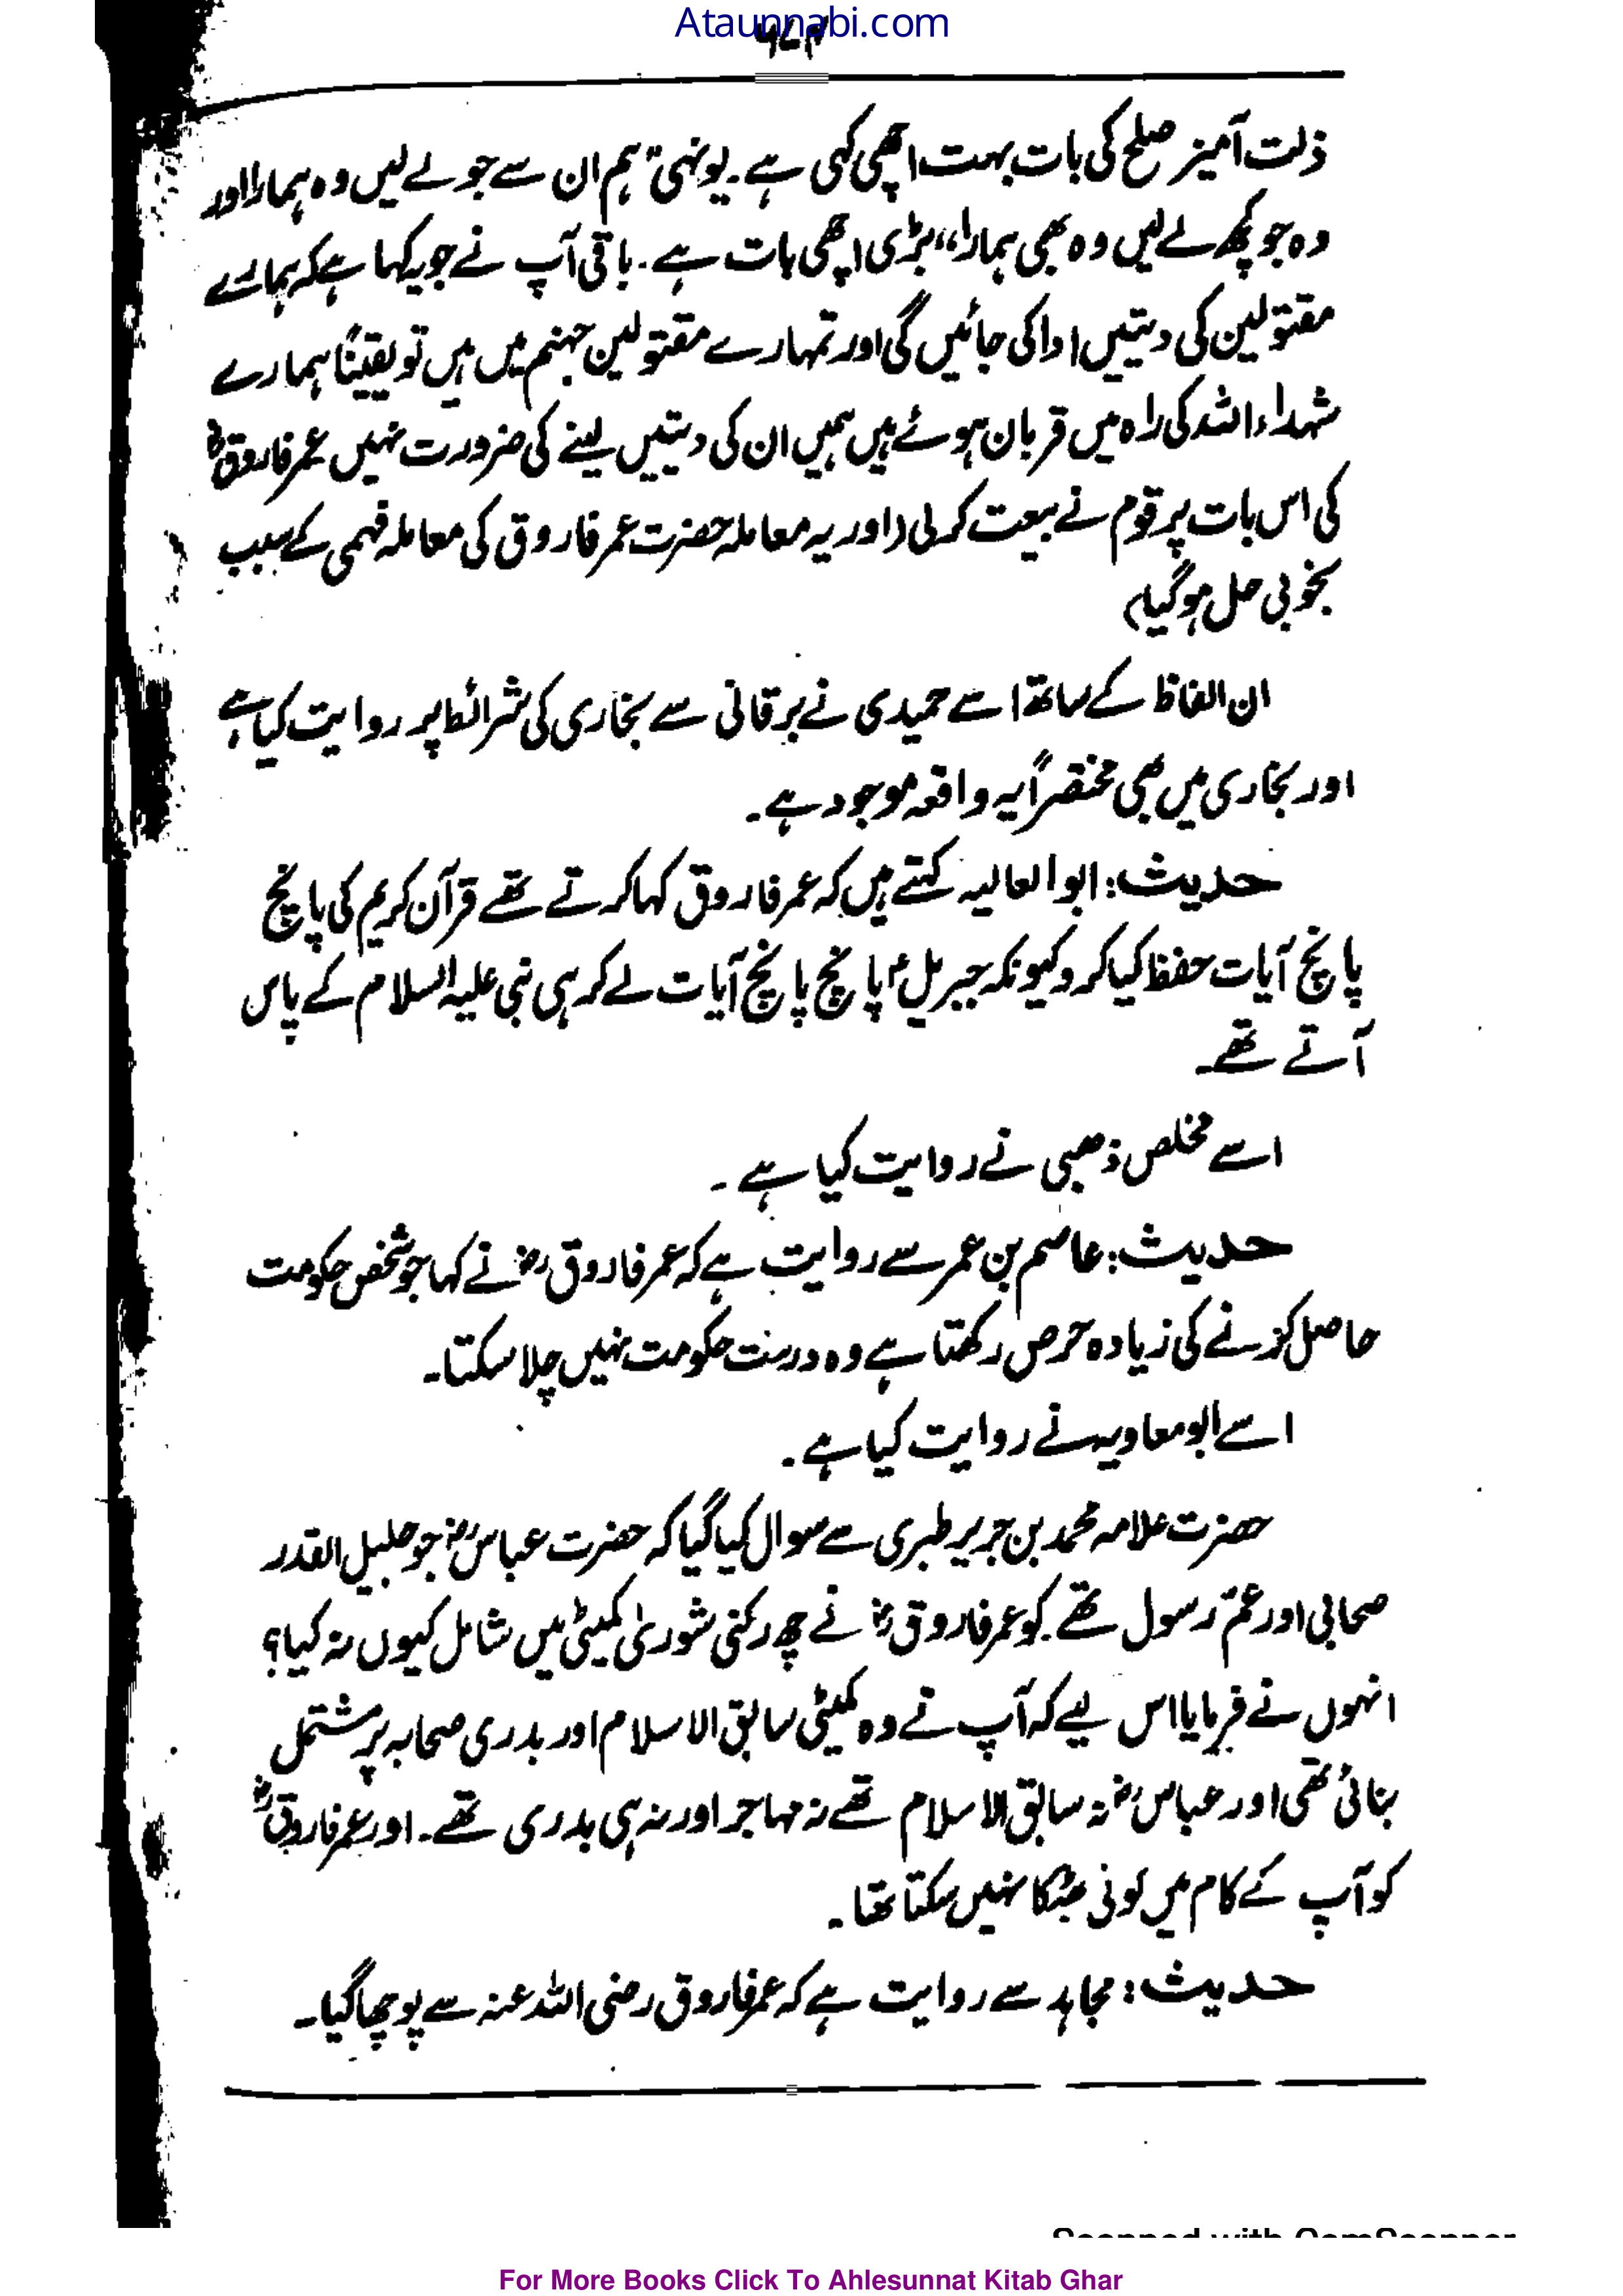 Ataunnabi.com
ذلت آمیز صلح کی بات بہت اچھی کہی ہے۔ یونہی "ہم ان سے جو لے لیں وہ ہمارا اور
وہ جو کچھ لے لیں وہ بھی ہمارا" بڑی اچھی بات ہے۔ باقی آپ نے جو یہ کہا ہے کہ ہمارے
مقتولین کی دیتیں ادا کی جائیں گی اور تمہارے مقتولین جہنم میں ہیں تو یقیناً ہمارے
شہداء اللہ کی راہ میں قربان ہوئے ہیں ہمیں ان کی دیتیں لینے کی ضرورت نہیں عمر فاروقؓ
کی اس بات پر قوم نے بیعت کر لی (اور یہ معاملہ حضرت عمر فاروق کی معاملہ فہمی کے سبب
بخوبی حل ہو گیا)
ان الفاظ کے ساتھ اسے حمیدی نے برقانی سے بخاری کی شرائط پر روایت کیا ہے
اور بخاری میں بھی مختصراً یہ واقعہ موجود ہے۔
حدیث: ابو العالیہ کہتے ہیں کہ عمر فاروق کہا کرتے تھے قرآن کریم کی پانچ
پانچ آیات حفظ کیا کرو کیونکہ جبریلؑ پانچ پانچ آیات لے کر ہی نبی علیہ السلام کے پاس
آتے تھے۔
اسے مخلص ذھبی نے روایت کیا ہے۔
حدیث: عاصم بن عمر سے روایت ہے کہ عمر فاروقؓ نے کہا جو شخص حکومت
حاصل کرنے کی زیادہ حرص رکھتا ہے وہ درست حکومت نہیں چلا سکتا۔
اسے ابو معاویہ نے روایت کیا ہے۔
حضرت علامہ محمد بن جریر طبری سے سوال کیا گیا کہ حضرت عباسؓ جو جلیل القدر
صحابی اور عمّ رسول تھے کو عمر فاروقؓ نے چھ رکنی شوریٰ کمیٹی میں شامل کیوں نہ کیا؟
انہوں نے فرمایا اس لیے کہ آپ نے وہ کمیٹی سابق الاسلام اور بدری صحابہ پر مشتمل
بنائی تھی اور عباسؓ نہ سابق الاسلام تھے نہ مہاجر اور نہ ہی بدری تھے۔ اور عمر فاروقؓ
کو آپ کے کام میں کوئی جھٹکا نہیں سکتا تھا۔
حدیث: مجاہد سے روایت ہے کہ عمر فاروق رضی اللہ عنہ سے پوچھا گیا۔
Scanned with CamScanner
For More Books Click To Ahlesunnat Kitab Ghar